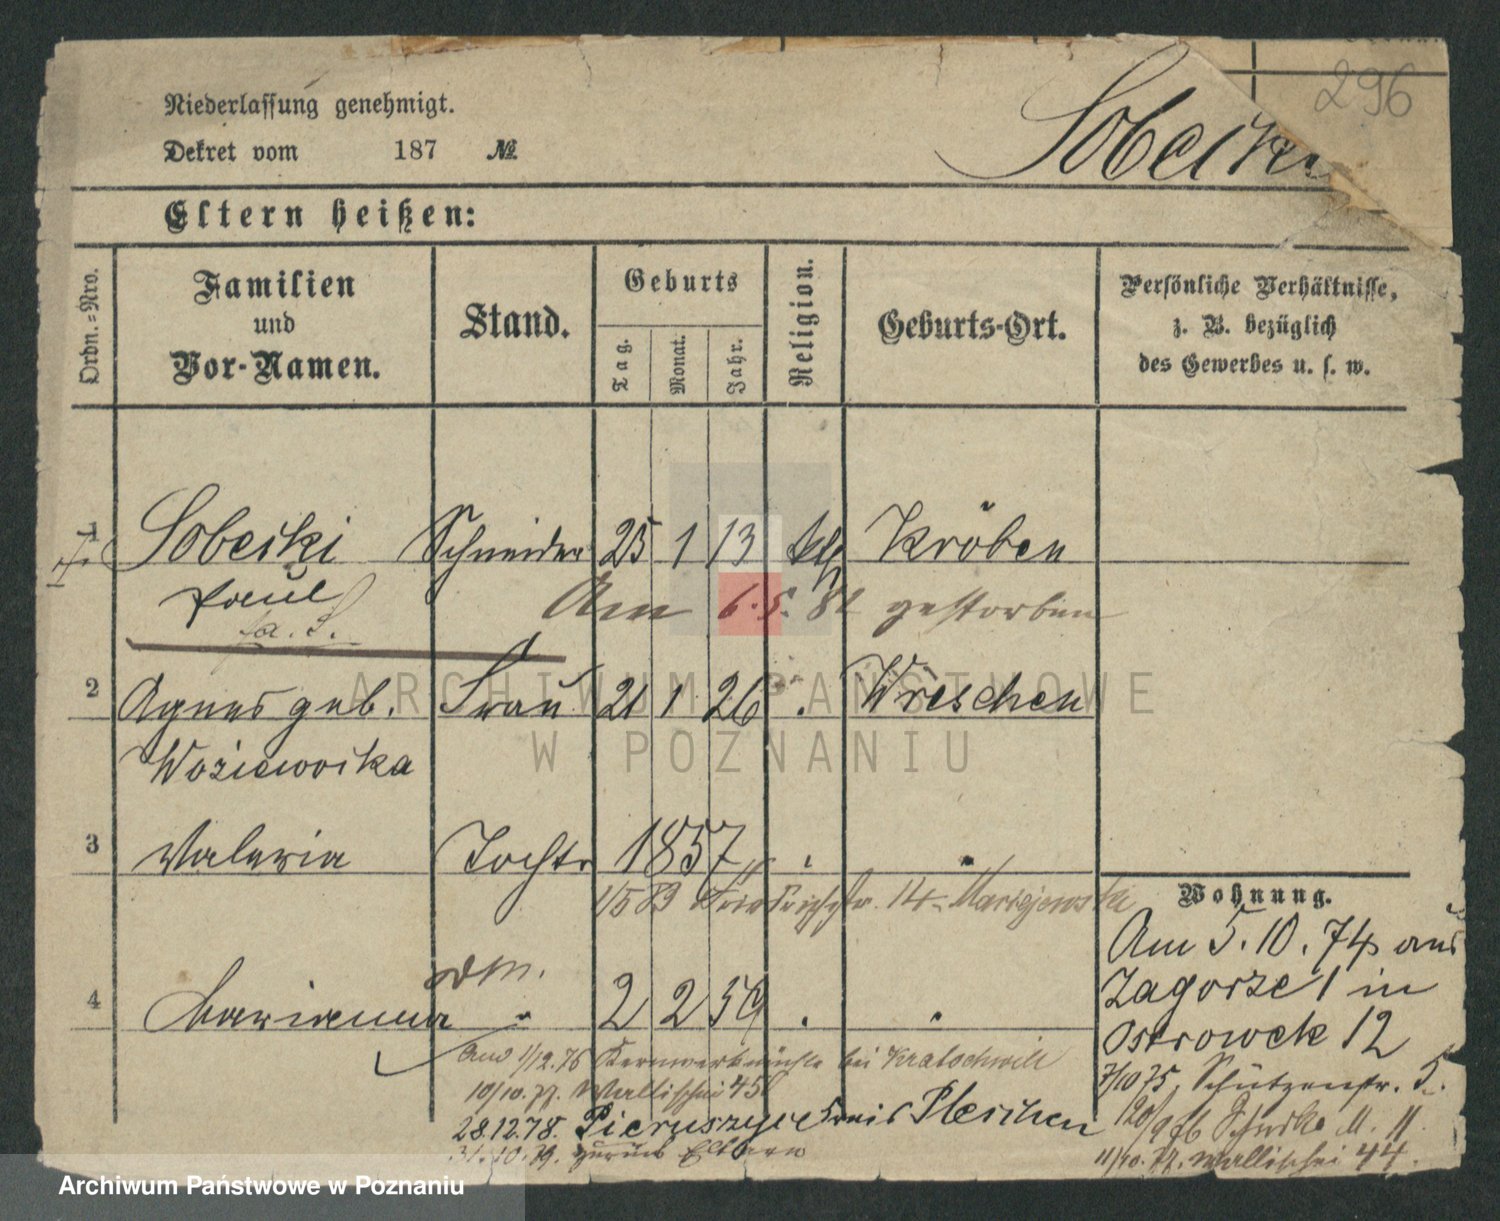 296
Niederlassung genehmigt.
Dekret vom 187 №
Sobecki
Eltern heißen:
Ordn.-Nro.
Familien und Vor-Namen.
Stand.
Geburts
Tag.
Monat.
Jahr.
Religion.
Geburts-Ort.
Persönliche Verhältnisse,
z. B. bezüglich
des Gewerbes u. s. w.
1 Sobecki Schneider 25 1 13 kth Kröben
Paul Am 6.5.82 gestorben
2 Agnes geb. Frau 21 1 26 . Wreschen
3 Valeria Tochtr 1857 . .
1/5 83 Friedrichstr. 14
Wohnung.
Am 5.10.74 aus
Zagorze 1 in
Ostrowek 12
4 Marianna " 2 2 59 . .
1/12.76 Kernwerkmühle bei Kratochwill
7/10 75, Schützenstr. 5.
10/10.77. Wallischei 45
28.12.78. Kreis Pleschen
31.10.79. zurück Eltern
11/10.77. Wallischei 44.
ARCHIWUM PAŃSTWOWE
W POZNANIU
Archiwum Państwowe w Poznaniu